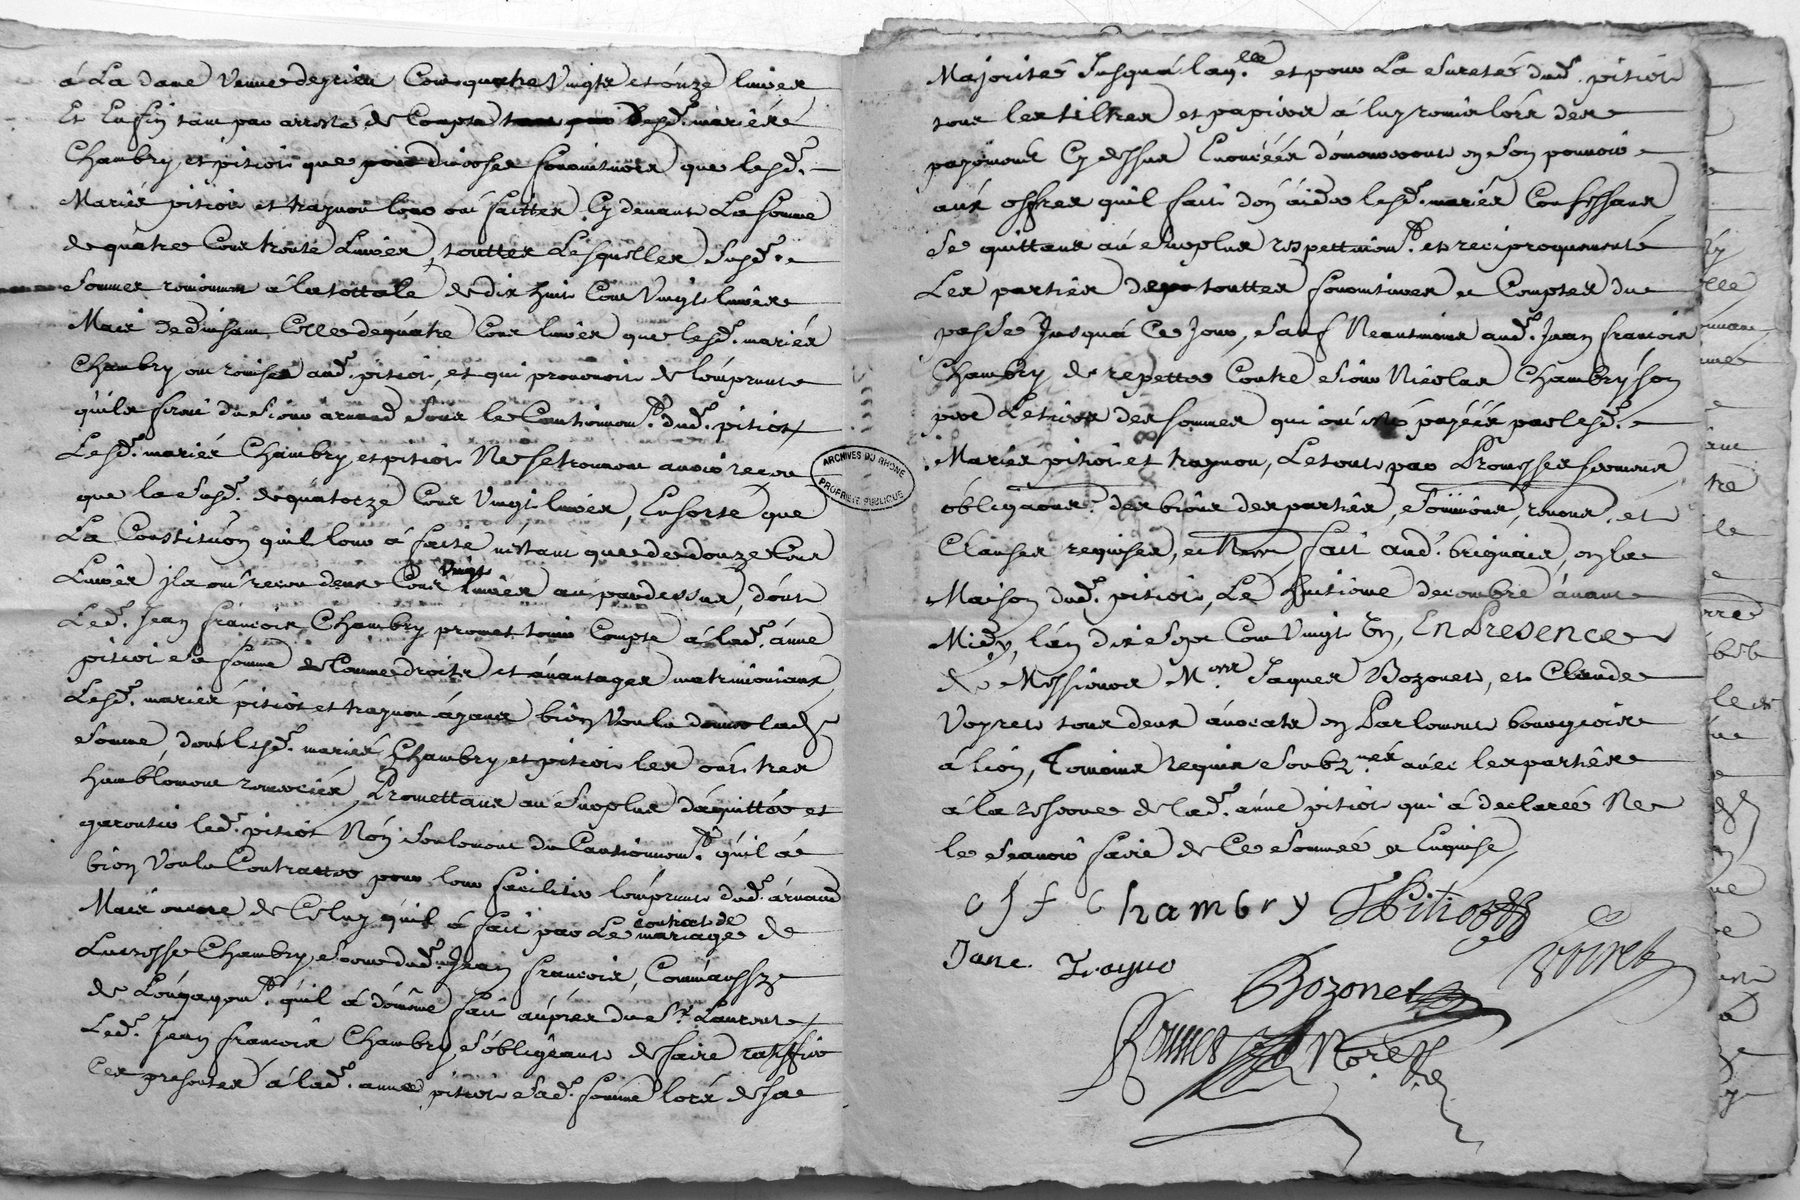 á La dame Veuve degrieu Cens quatre Vingts et ónze livres
Et Enfin tant pas arresté de Compte Susd. mariés
Chambry, et pitiot que diverses fournitures que lesd.
Mariés pitiot et tragnou leur ont faittes Cy devant La somme
de quatre Cens trente Livres, touttes Lesquelles Susd.
Sommes reviennent á la tottale de dix huit Cens Vingt livres
Mais deduisant Celle dequatre Cens livres que lesd. mariés
Chambry ont remise aud. pitiot, et qui provenoit de lémprunt
quils firent du sieur arnaud sous le Cautionnem.t dud. pitiot
Lesd. mariés Chambry, et pitiot Ne se trouvent avoir receu
que la Susd. dequatorze Cens Vingt livres, Ensorte que
La Constitution quil leur á faite nestant que de douze Cens
Livres jls ont receu deux Cens Vingt livres au pardessus, dont
Led. Jean francois Chambry promet tenir Compte á lad. ánne
pitiot sa femme de Comme droits et ávantages matrimoniaux
Lesd. mariés pitiot et tragnou áyant bien Voulu donner lad.
Somme, dont lesd. mariés Chambry et pitiot les ont tres
humblement remerciés, Promettant au Surplus dáquitter et
garentir led. pitiot Nón Seulement du Cautionnem.t quil á
bien Voulu Contracter pour leur faciliter lémprunt dud. árnaud
Mais encore de Celuy quil á fait par Le contrat de mariage de
Lucresse Chambry Soeur dud. Jean francois, Comme aussy
de Lengagem.t quil á dememe fait áuprés du S.r Laurent
Led. Jean francois Chambry, S'obligeant de faire ratiffier
Ces presentes á lad. anne pitiot Sad. femme lors de sa
Majorité Jusquá laq.lle et pour La Sureté dud. pitiot
tous les tiltres et papiers á luy remis lors des
payements Cy dessus Enoncées demeureront en Son pouvoir
aux offres quil fait dén áider lesd. mariés Confessans
Se quittans au Surplus respettivem.t et reciproquement
Les parties de touttes fournitures et Comptes du
passé Jusquá Ce Jour, Sauf Neantmoins aud. Jean francois
Chambry de repetter Contre Sieur Nicolas Chambry Son
pere Le tiers des sommes qui ont été payées par lesd.
Mariés pitiot et tragnou, Le tout par Promesses serments
óbliga͠ons des biens des parties, Soumi͠ons, renon͠s, et
Clauses requises, et fait aud. brignais, en la
Maison dud. pitiot, Le huitieme decembre ávant
Midy, lán dix Sept Cens Vingt Un, En Presence
de Messieurs M.res Jaques Bozonet, et Claude
Voyret tous deux ávocats en Parlement bourgeois
á lion, Temoins requis Soubz.nés avec les parties
á la reserve de lad. ánne pitiot qui á declaré Ne
le Scavoir faire de Ce Sommée et Enquise
J f Chambry Pitiot
Jane Tragno Voiret
Bozonet